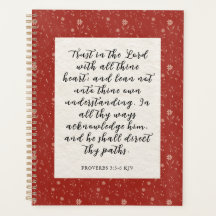 Trust in the Lord
with all thine
heart; and lean not
unto thine own
understanding. In
all thy ways
acknowledge him,
and he shall direct
thy paths.
PROVERBS 3:5-6 KJV